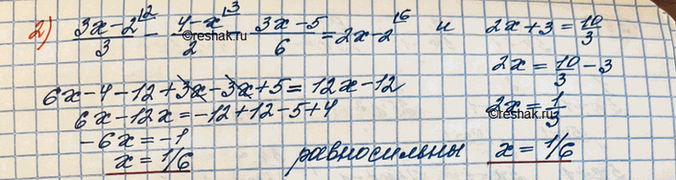 2) (3x-2)/3 ^|2 - (4-x)/2 ^|3 - (3x-5)/6 = 2x-2 ^|6 и 2x+3 = 10/3
6x-4-12+3x-3x+5=12x-12
6x-12x=-12+12-5+4
-6x=-1
x=1/6
равносильны
2x = 10/3 - 3
2x = 1/3
x = 1/6
©reshak.ru
©reshak.ru